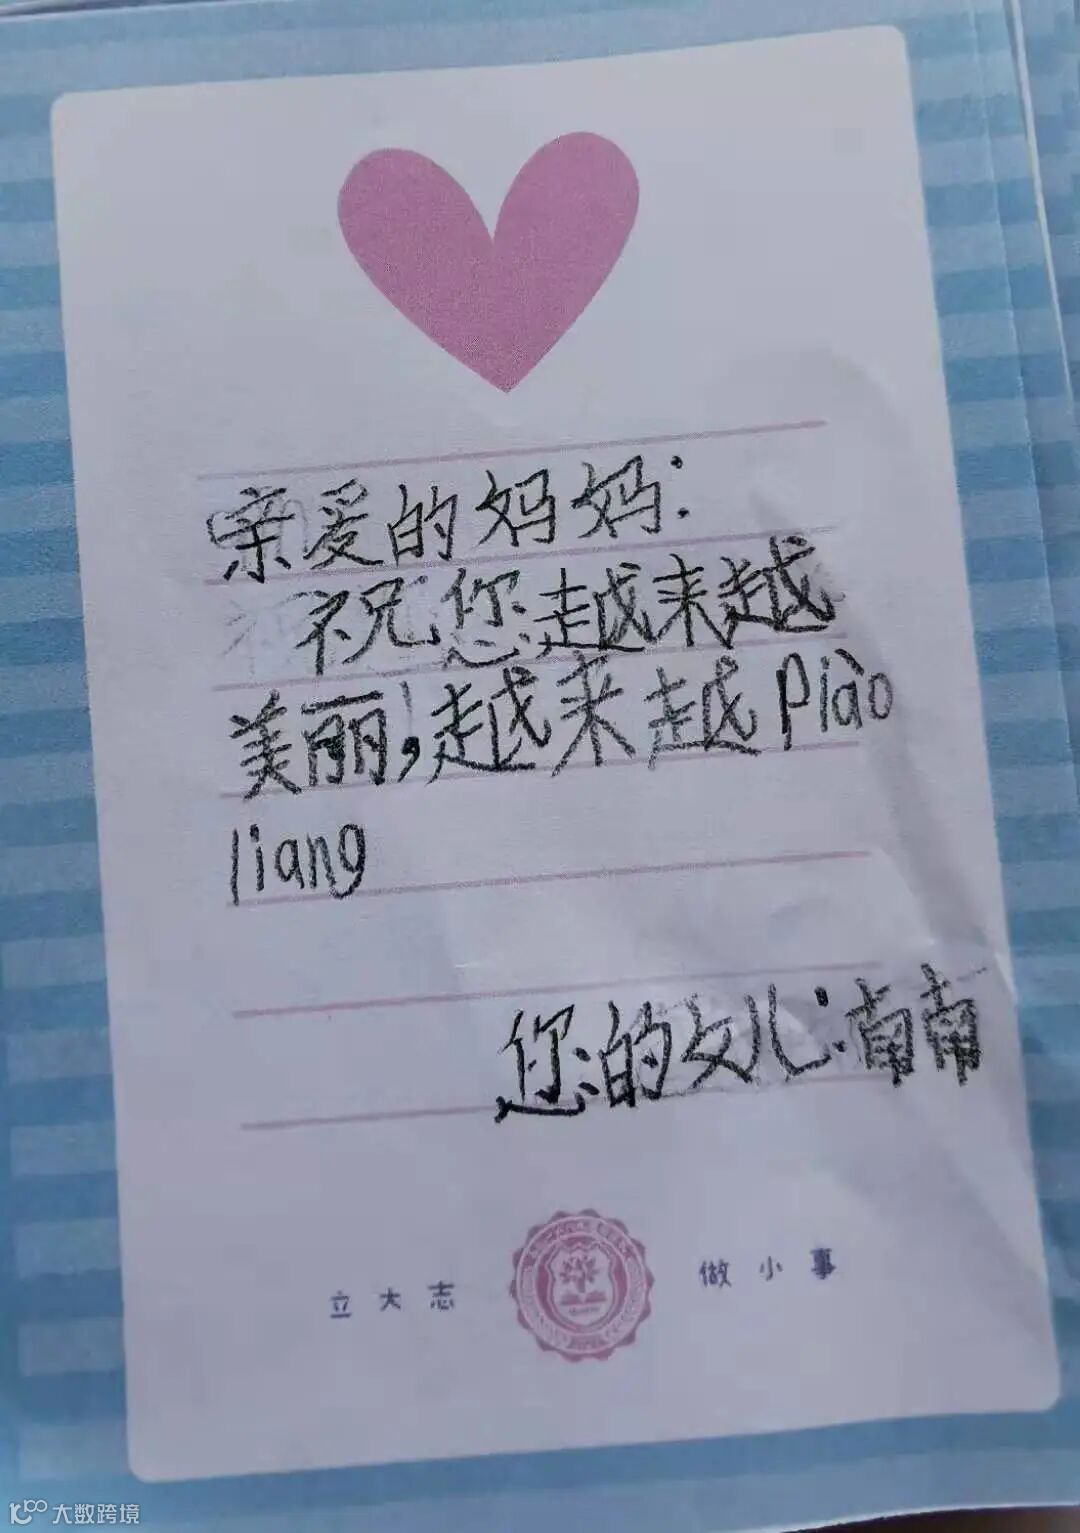 亲爱的妈妈:
祝您越来越
美丽,越来越piào
liang
您的女儿:南南
立大志 做小事
大数跨境